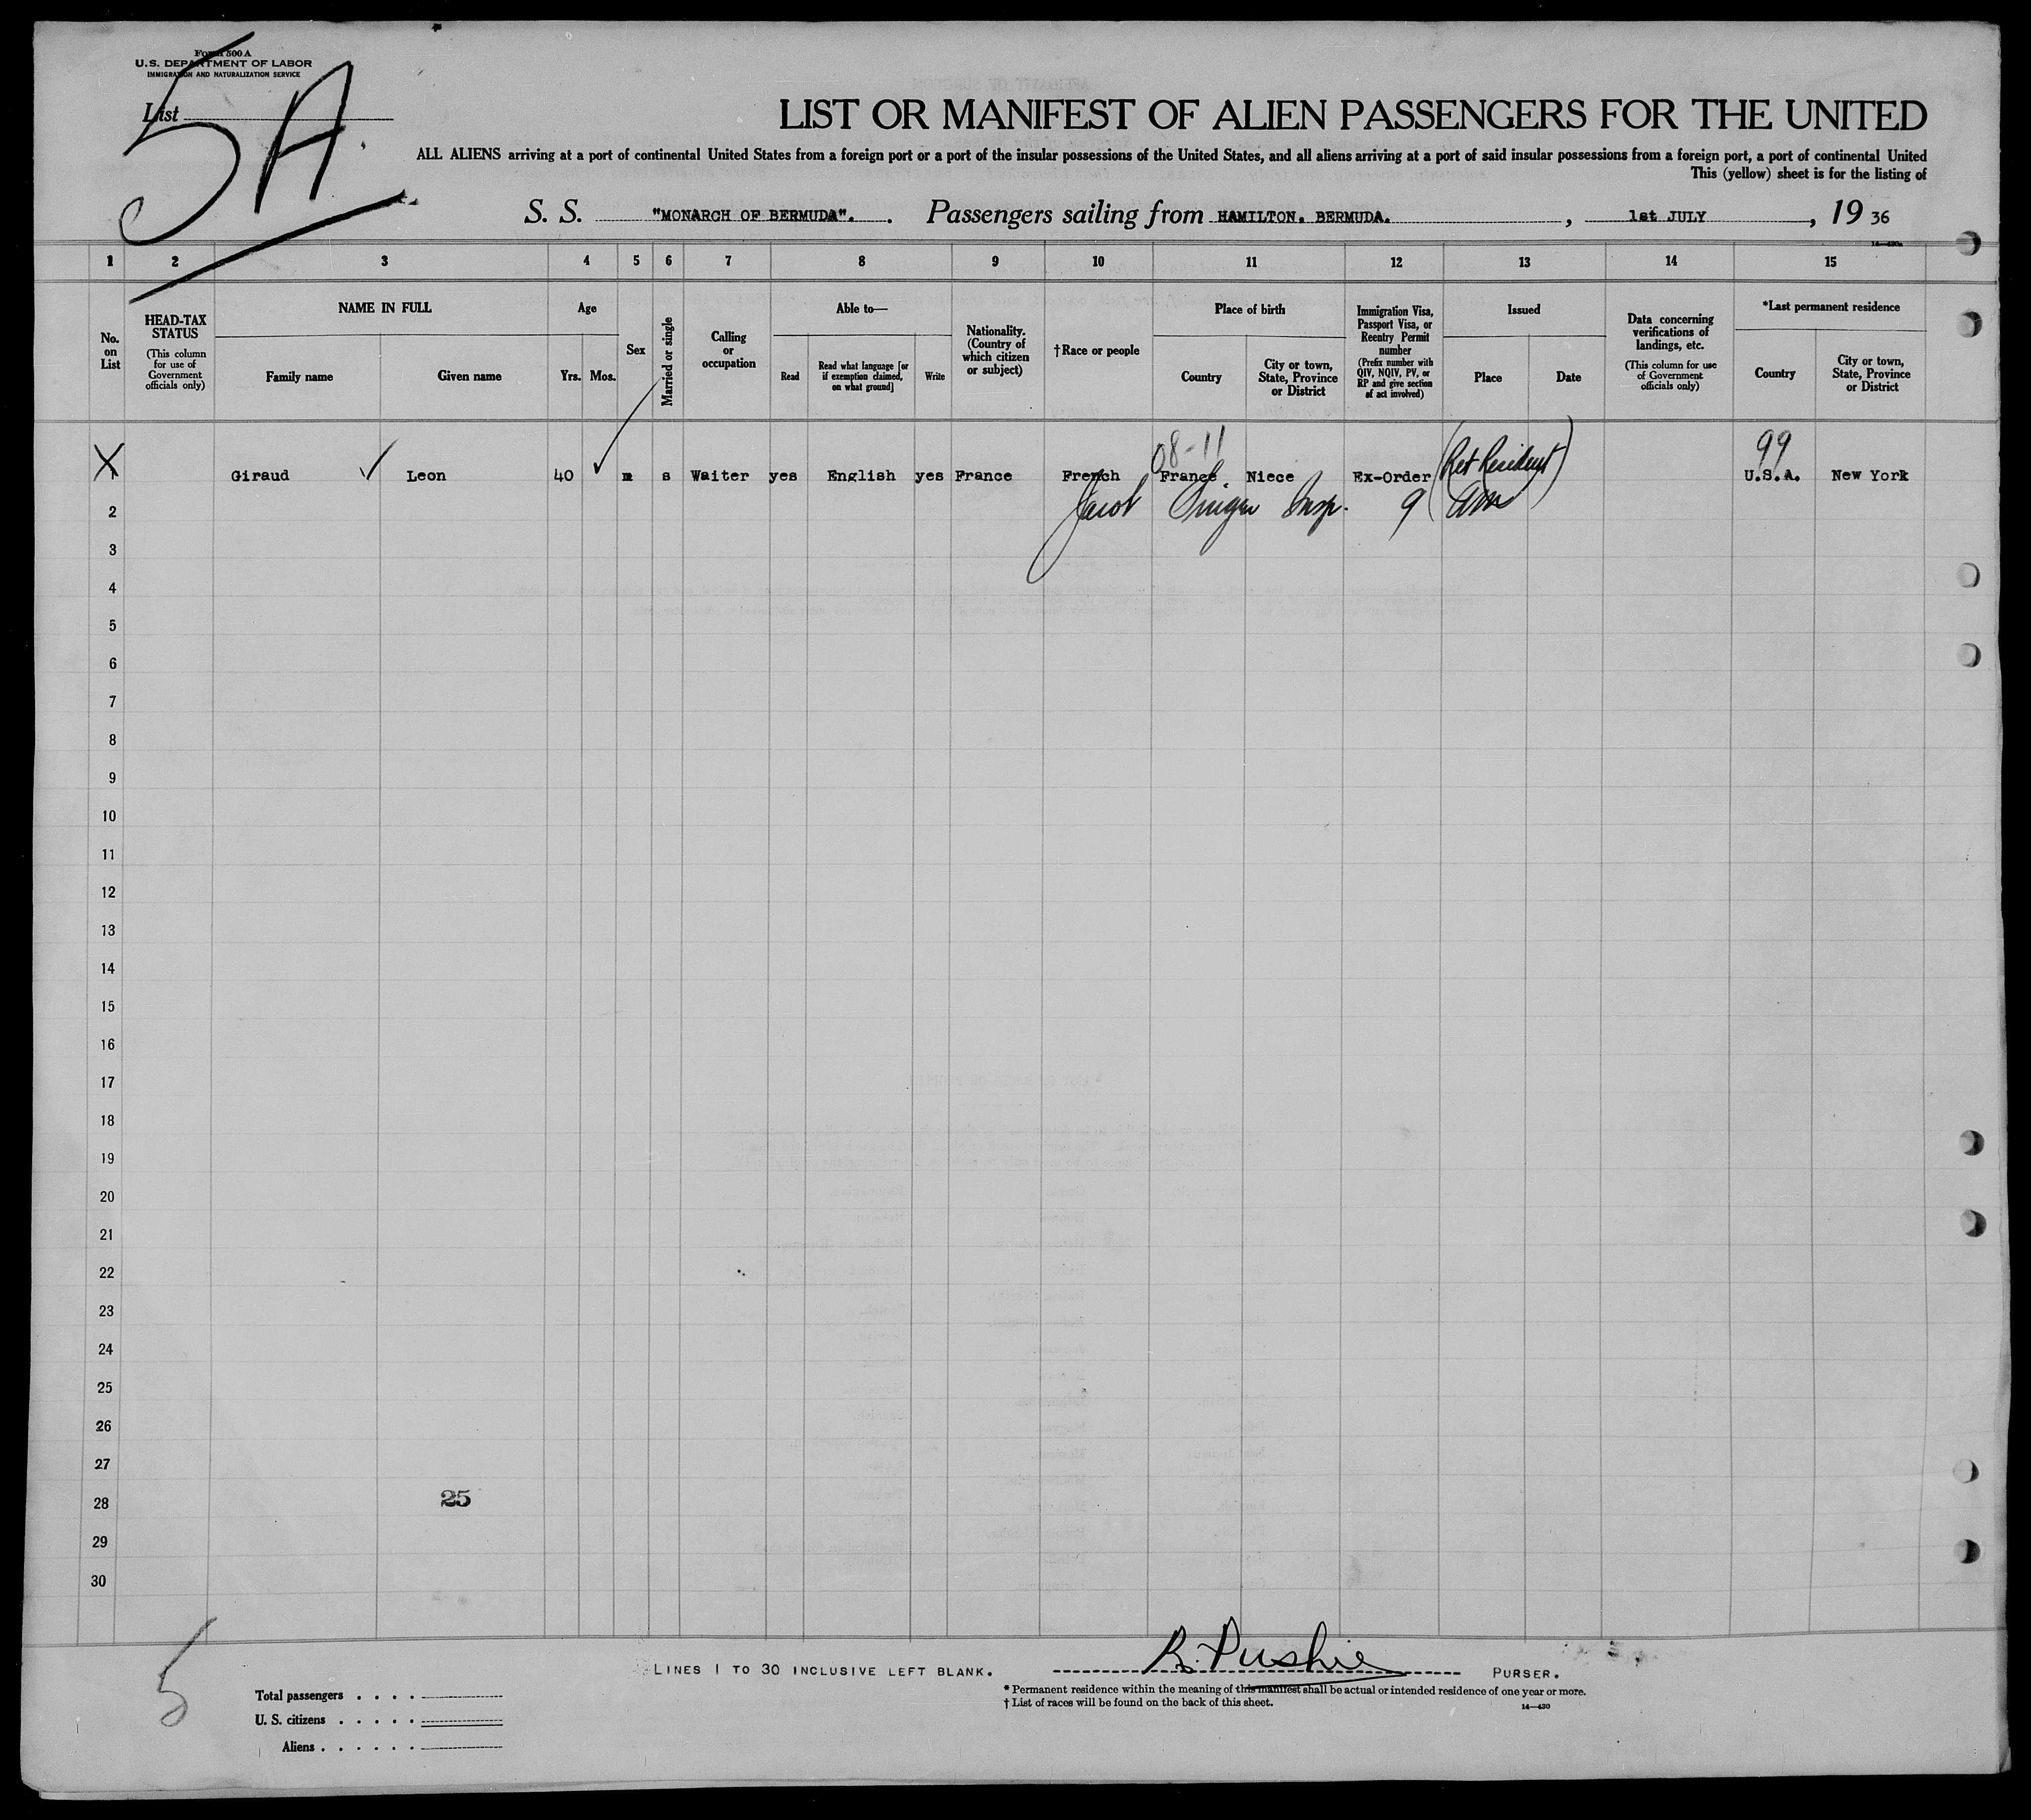 Form 500 A
U.S. DEPARTMENT OF LABOR
IMMIGRATION AND NATURALIZATION SERVICE
List
5A
LIST OR MANIFEST OF ALIEN PASSENGERS FOR THE UNITED
ALL ALIENS arriving at a port of continental United States from a foreign port or a port of the insular possessions of the United States, and all aliens arriving at a port of said insular possessions from a foreign port, a port of continental United
This (yellow) sheet is for the listing of
S. S. "MONARCH OF BERMUDA". . Passengers sailing from HAMILTON. BERMUDA. , 1st JULY , 19 36
1 2 3 4 5 6 7 8 9 10 11 12 13 14 15
No. on List
HEAD-TAX STATUS
(This column for use of Government officials only)
NAME IN FULL
Family name
Given name
Age
Yrs. Mos.
Sex
Married or single
Calling or occupation
Able to—
Read
Read what language [or if exemption claimed, on what ground]
Write
Nationality. (Country of which citizen or subject)
†Race or people
Place of birth
Country
City or town, State, Province or District
Immigration Visa, Passport Visa, or Reentry Permit number
(Prefix number with QIV, NQIV, PV, or RP and give section of act involved)
Issued
Place
Date
Data concerning verifications of landings, etc.
(This column for use of Government officials only)
*Last permanent residence
Country
City or town, State, Province or District
08-11
(Ret Resident)
99
X Giraud ✓ Leon 40 ✓ m s Waiter yes English yes France French France Niece Ex-Order U.S.A. New York
Jacob Singer Insp. 9
2
3
4
5
6
7
8
9
10
11
12
13
14
15
16
17
18
19
20
21
22
23
24
25
26
27
28 25
29
30
5
LINES 1 TO 30 INCLUSIVE LEFT BLANK. R. Pushie PURSER.
* Permanent residence within the meaning of this manifest shall be actual or intended residence of one year or more.
† List of races will be found on the back of this sheet.
14—430
Total passengers . . . .
U. S. citizens . . . . .
Aliens . . . . . .